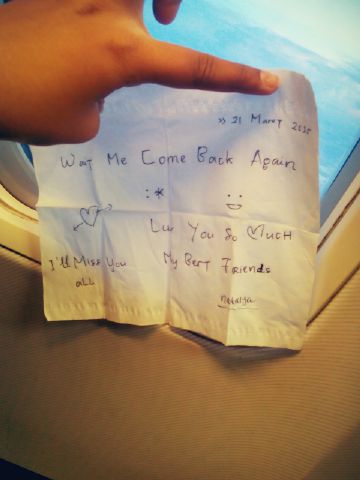 >> 21 Maret 2015
Wait Me Come Back Again
:*
Luv You So Much
I'll Miss You My Best Friends
all
natalza